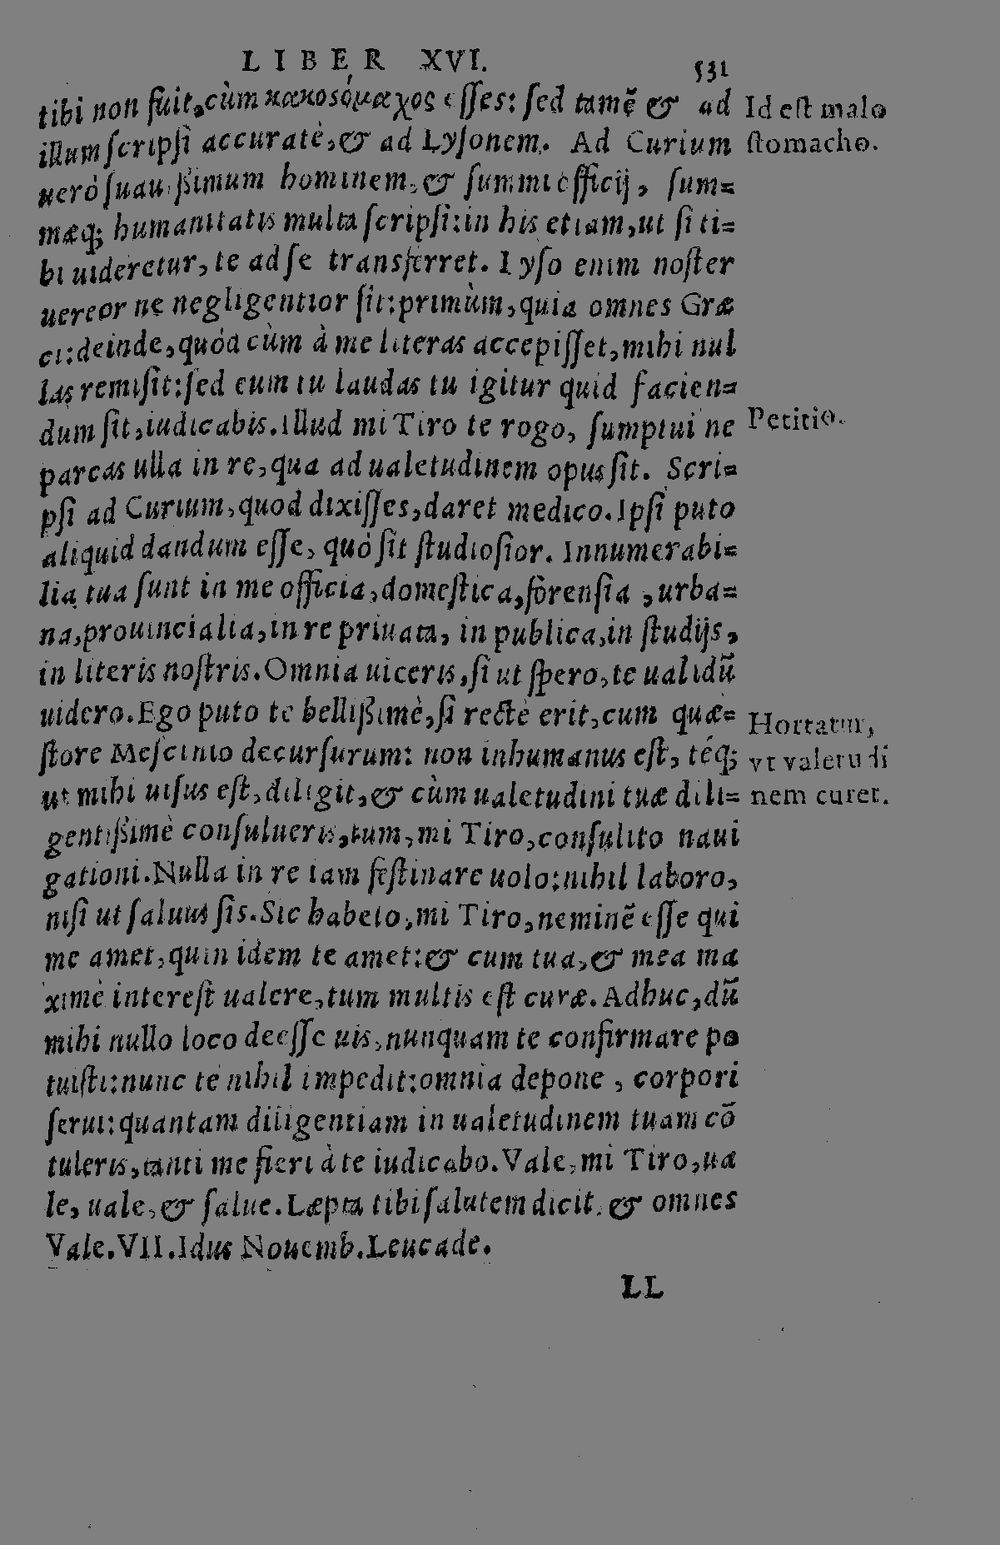 LIBER XVI. 531
tibi non fuit, cùm κακοσόμαχος esses: sed tamẽ & ad
illum scripsi accuratè, & ad Lysonem. Ad Curium
uerò suauißimum hominem, & summi officij, sum=
mæq; humanitatis multa scripsi: in his etiam, ut si ti=
bi uideretur, te ad se transferret. Lyso enim noster
uereor ne negligentior sit: primùm, quia omnes Græ
ci: deinde, quòd cùm à me literas accepisset, mihi nul
las remisit: sed eum tu laudas tu igitur quid facien=
dum sit, iudicabis. Illud mi Tiro te rogo, sumptui ne
parcas ulla in re, qua ad ualetudinem opus sit. Scri=
psi ad Curium, quod dixisses, daret medico. Ipsi puto
aliquid dandum esse, quò sit studiosior. Innumerabi=
lia tua sunt in me officia, domestica, forensia, urba=
na, prouincialia, in re priuata, in publica, in studijs,
in literis nostris. Omnia uiceris, si ut spero, te ualidũ
uidero. Ego puto te bellißimè, si rectè erit, cum quæ=
store Mescinio decursurum: non inhumanus est, téq;
ut mihi uisus est, diligit, & cùm ualetudini tuæ dili=
gentißimè consulueris, tum, mi Tiro, consulito naui
gationi. Nulla in re iam festinare uolo: nihil laboro,
nisi ut saluus sis. Sic habeto, mi Tiro, neminẽ esse qui
me amet, quin idem te amet: & cum tua, & mea ma
ximè interest ualere, tum multis est curæ. Adhuc, dũ
mihi nullo loco deesse uis, nunquam te confirmare po
tuisti: nunc te nihil impedit: omnia depone, corpori
serui: quantam diligentiam in ualetudinem tuam cõ
tuleris, tanti me fieri à te iudicabo. Vale, mi Tiro, ua
le, uale, & salue. Læpta tibi salutem dicit, & omnes
Vale. VII. Idus Nouemb. Leucade.
LL
Id est malo
stomacho.
Petitio.
Hortatur,
vt valetudi
nem curet.